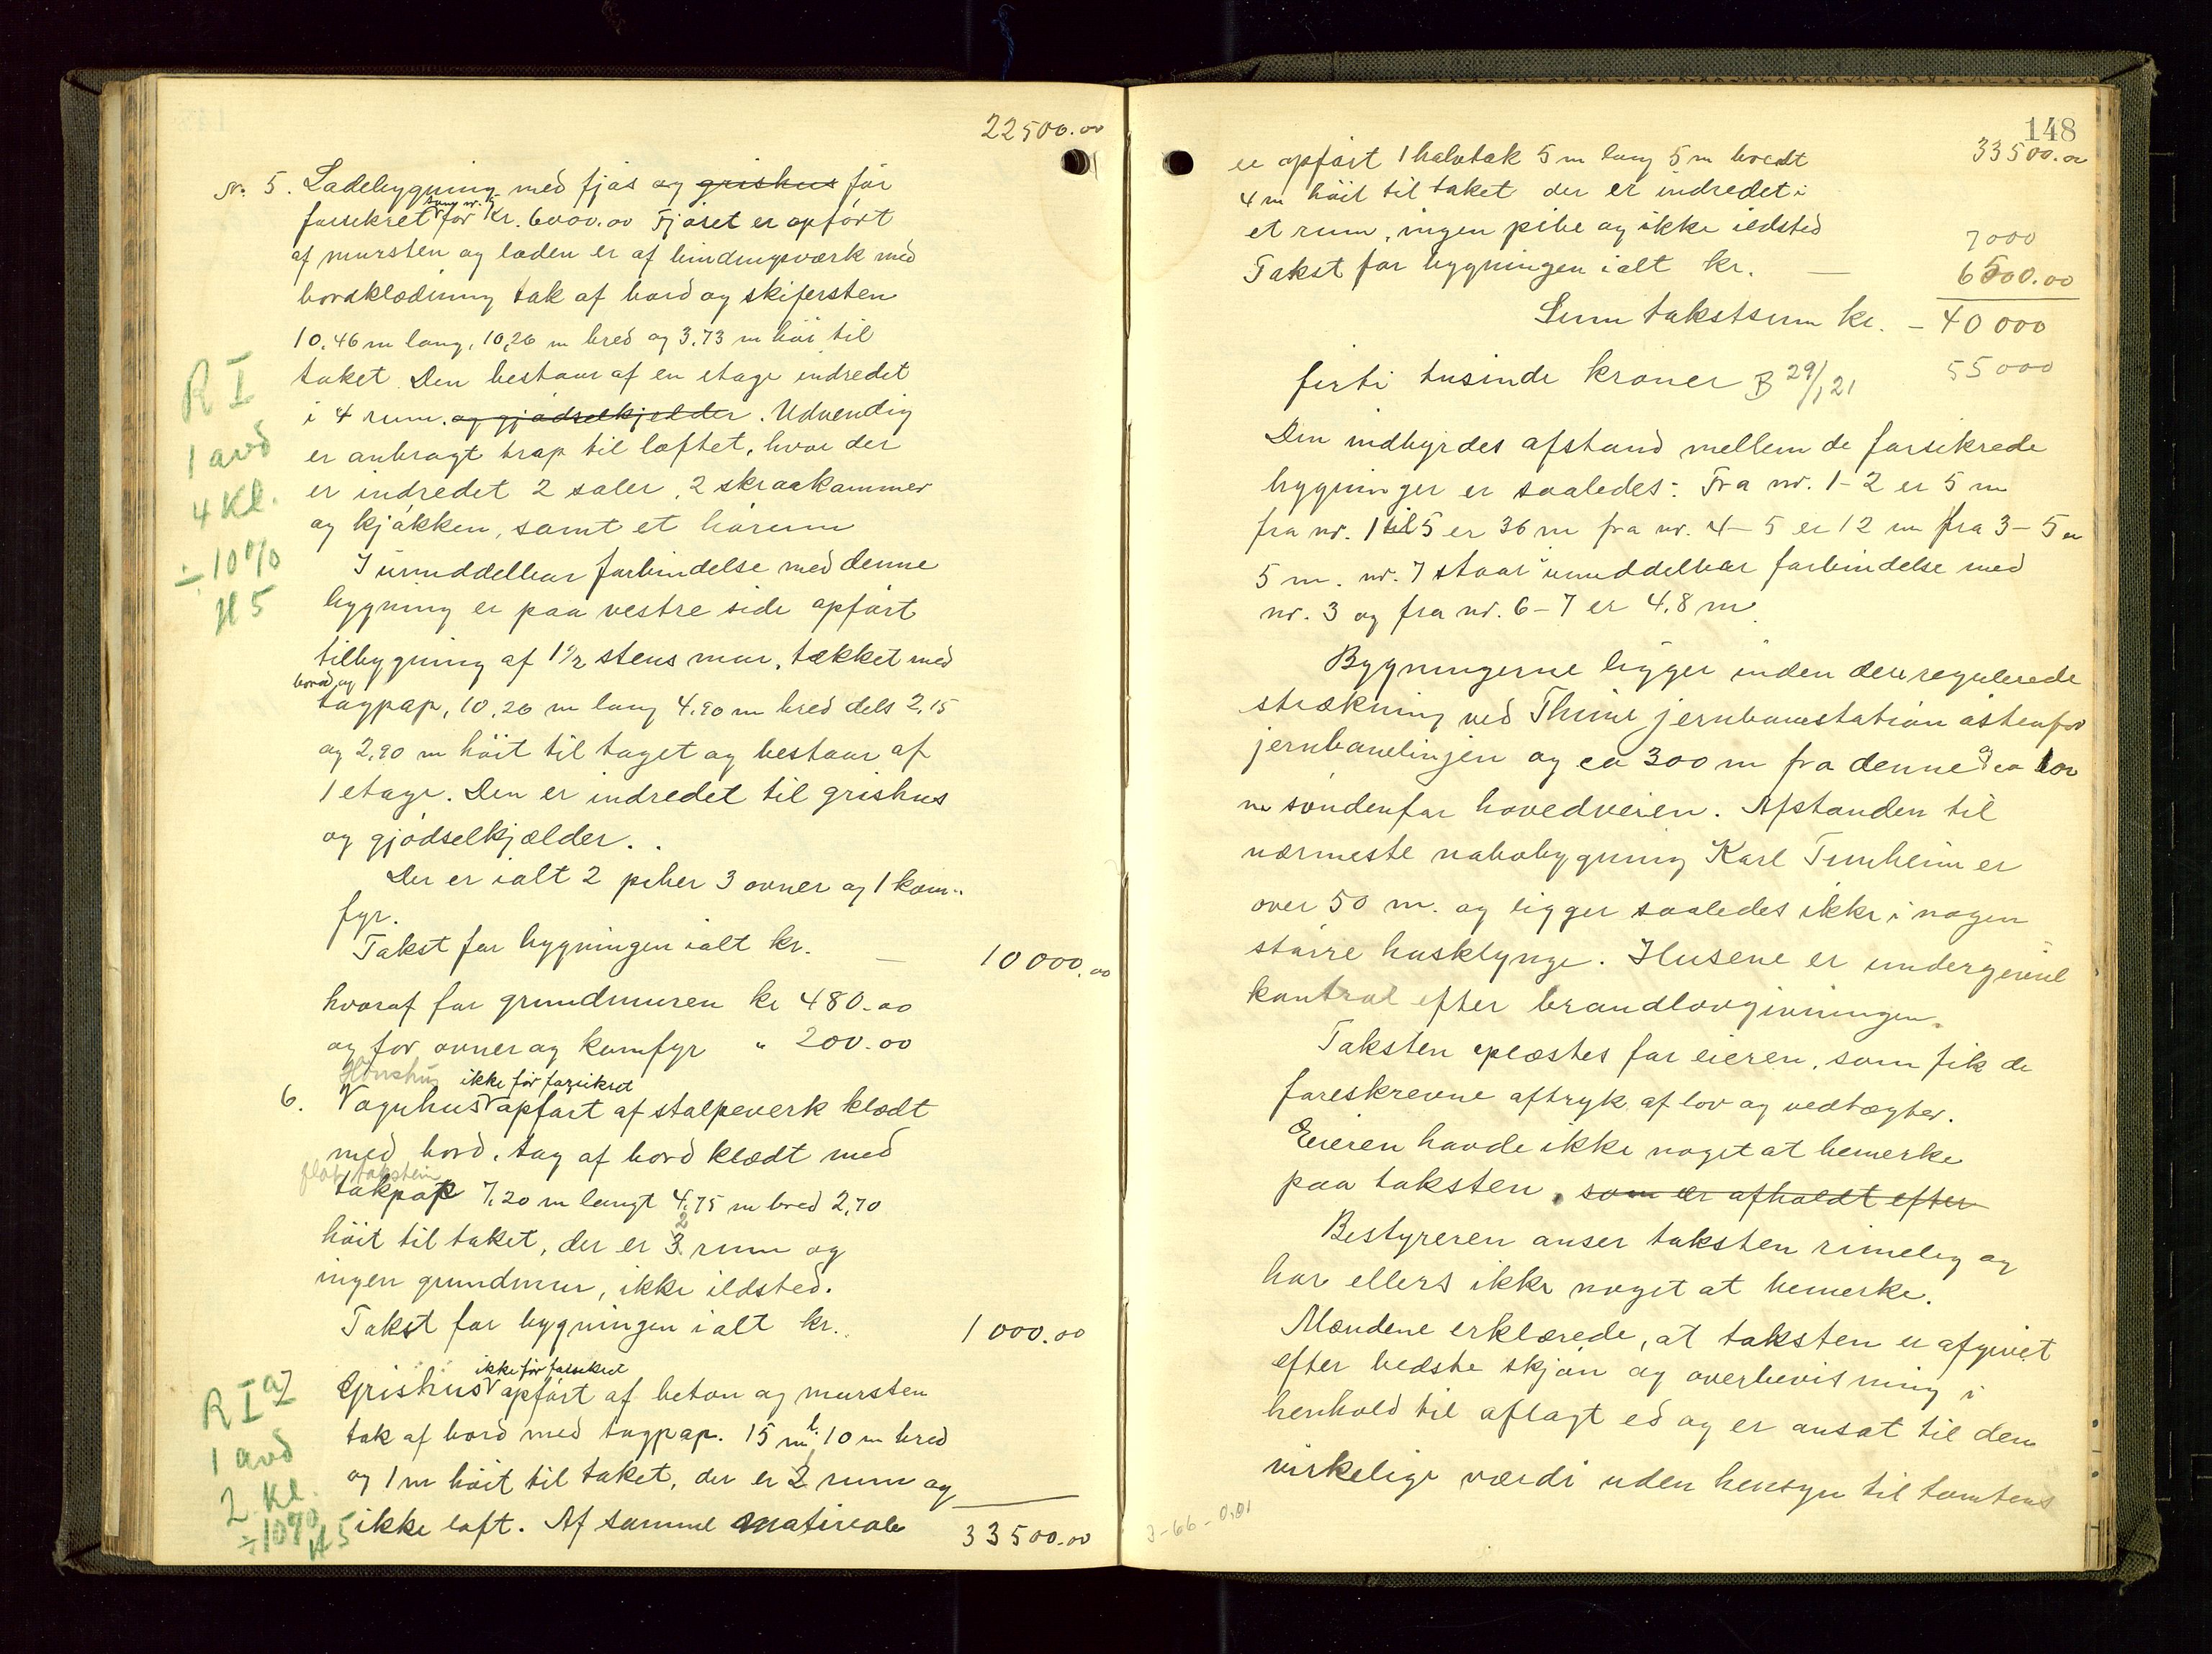 22500.00
Nr. 5. Ladebygning med fjøs og grishus før
forsikret som nr. 5 for Kr. 6000.00 Fjøset er opført
af mursten og laden er af bindingsværk med
bordklædning tak af bord og skifersten
10.46 m lang, 10,26 m bred og 3.73 m høi til
taket. Den bestaar af en etage indredet
i 4 rum. og gjødselkjelder. Udvendig
er anbragt trap til loftet, hvor der
er indredet 2 saler, 2 skraakammer
og kjøkken, samt et hørum
I umiddelbar forbindelse med denne
bygning er paa vestre side opført
tilbygning af 1 1/2 stens mur, tækket med
bord og
tagpap, 10,26 m lang 4.90 m bred dels 2,15
og 2,90 m höit til taget og bestaar af
1 etage. Den er indredet til grishus
og gjødselkjælder.
Der er ialt 2 piber 3 ovner og 1 kom-
fyr.
Takst for bygningen ialt kr. — 10000.00
hvoraf for grundmuren kr 480.00
og for ovner og komfyr " 200.00
Hønshus ikke før forsikret
6. Vognhus opført af stolpeverk klædt
med bord, tag af bord klædt med
flat takstein
takpap 7,20 m langt 4,75 m bred 2,70
2
höit til taket, der er 3 rum og
ingen grundmur, ikke ildsted.
Takst for bygningen ialt kr. 1000.00
ikke før forsikret
7 Grishus opført af beton og mursten
tak af bord med tagpap. 15 m l. 10 m bred
og 1 m höit til taket, der er 2 rum og
ikke loft. Af samme materiale 33500.00
R I
1 avd
4 Kl.
÷ 10%
H 5
R I a
1 avd
2. Kl.
÷ 10%
H 5
148
33500.00
er opført 1 halvtak 5 m lang 5 m bredt
4 m höit til taket der er indredet i
et rum, ingen pibe og ikke ildsted
7000
Takst for bygningen ialt kr. — 6500.00
Sum takstsum kr. – 40 000
firti tusinde kroner B 29/1 21
55 000
Den indbyrdes afstand mellem de forsikrede
bygninger er saaledes: Fra nr. 1-2 er 5 m
fra nr. 1 til 5 er 36 m fra nr. 4–5 er 12 m fra 3–5 er
5 m. nr. 7 staar i umiddelbar forbindelse med
nr. 3 og fra nr. 6–7 er 4,8 m.
Bygningerne ligger inden den regulerede
strækning ved Thime jernbanestation østenfor
jernbanelinjen og ca 300 m fra denne og ca 100
m søndenfor hovedveien. Afstanden til
nærmeste nabobygning Karl Tunheim er
over 50 m. og ligger saaledes ikke i nogen
større husklynge. Husene er undergivet
kontrol efter brandlovgivningen.
Taksten oplæstes for eieren, som fik de
foreskrevne aftryk af lov og vedtægter.
Eieren havde ikke noget at bemerke
paa taksten, som er afholdt efter
Bestyreren anser taksten rimelig og
har ellers ikke noget at bemerke.
Mændene erklærede, at taksten er afgivet
efter bedste skjøn og overbevisning i
henhold til aflagt ed og er ansat til den
virkelige værdi uden hensyn til tomtens
J-66-0,01